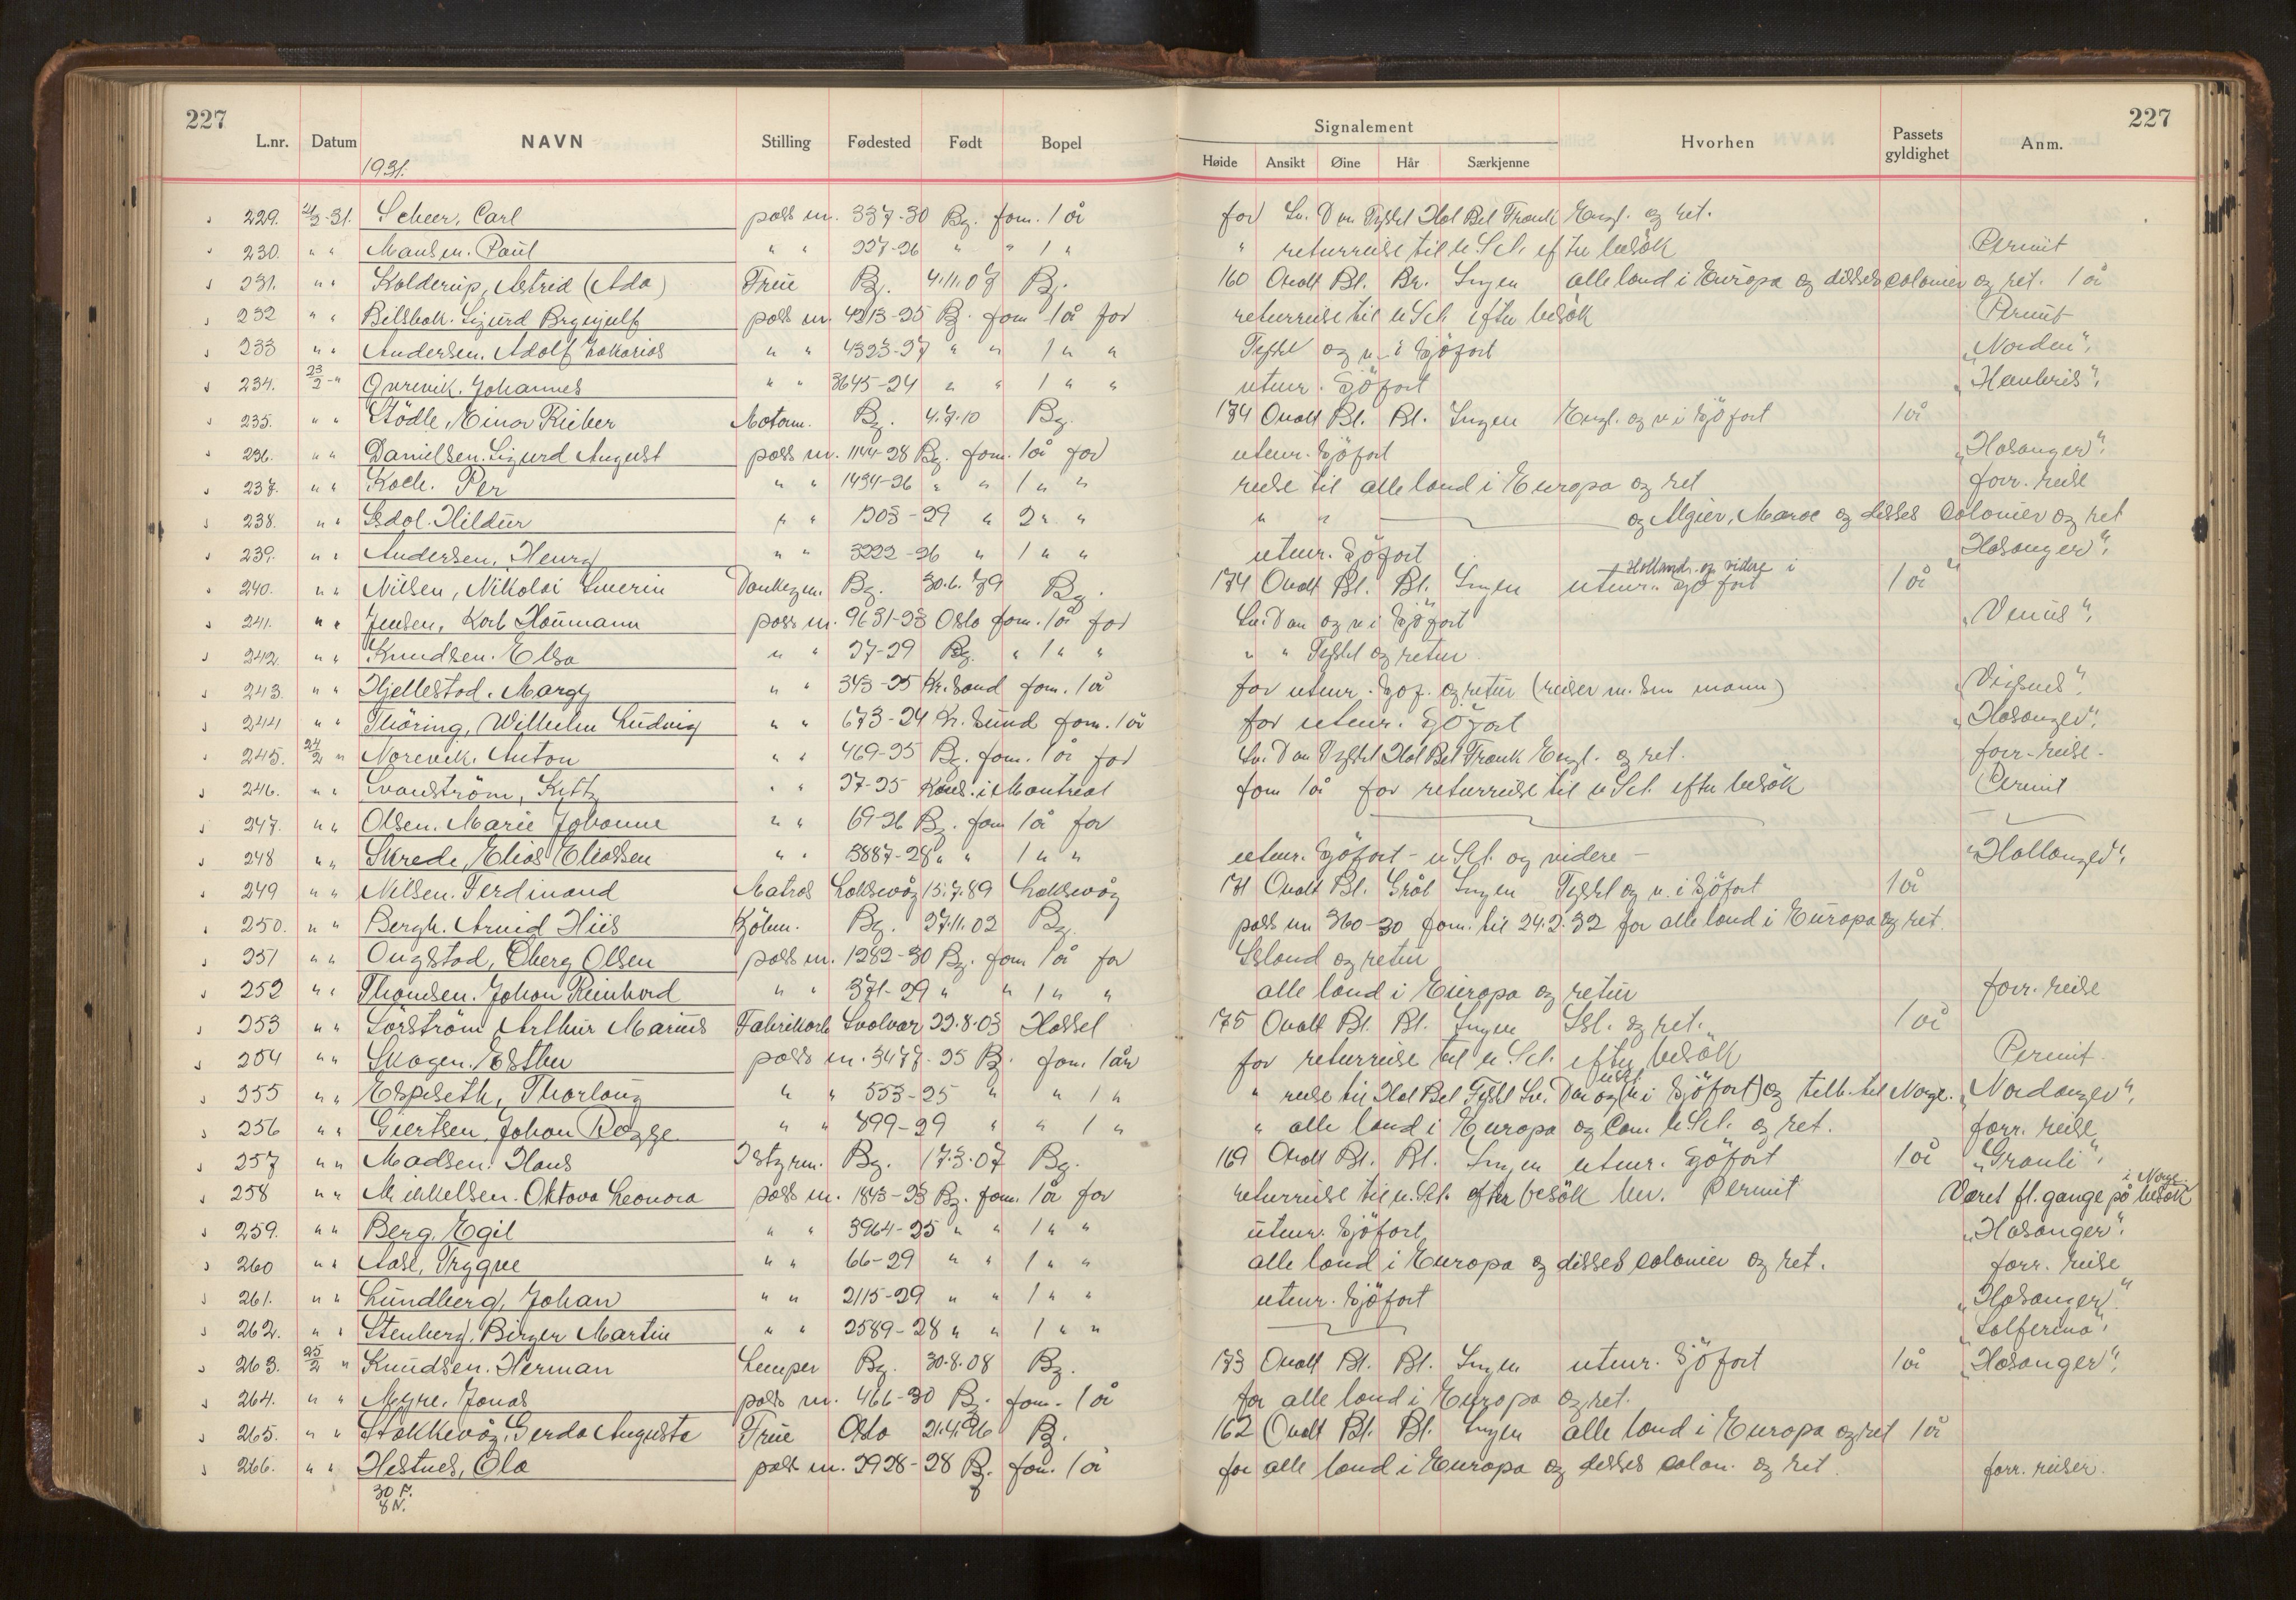 227
L.nr. Datum NAVN Stilling Fødested Født Bopel
1931.
Signalement
Høide Ansikt Øine Hår Særkjenne Hvorhen Passets gyldighet Anm.
227
229. 21/2-31. Scheer, Carl pass nr. 337-30 Bg. forn. 1 år for Sv. Dan Tyskl Hol Bel Frank Engl. og ret.
230. " " Monsen. Paul " " 227-26 " " 1 " " returreise til u Sct. efter besök Permit
231. " " Kolderup, Astrid (Ada) Frue Bg. 4.11.07 Bg. 160 Ovalt Bl. Br. Ingen alle land i Europa og disses colonier og ret. 1 år
232 " " Bilsbak. Sigurd Brynjulf pass nr. 4213-25 Bg. forn 1 år for returreise til u Sct. efter besök Permit
233 " " Andersen. Adolf Zakarias " " 4323-27 " " 1 " " Tyskl og v. i Sjöfart "Norden".
234. 23/2 - " Qvrevik. Johannes " " 3645-24 " " 1 " " utenr. Sjöfart "Haukeris".
235. " " Stödle, Einar Rieber Motorm. Bg. 4.7.10 Bg. 174 Ovalt Bl. Bl. Ingen Engl. og v i Sjöfart 1 år
236. " " Danielsen. Sigurd August pass nr. 1144-28 Bg. forn. 1 år for utenr. Sjöfart "Hosanger".
237. " " Koch. Per " " 1494-26 " " 1 " " reise til alle land i Europa og ret forr. reise
238. " " Isdal. Hildur " " 1203-29 " 2 " " " " og Algier, Maroc og disses Colonier og ret
239. " " Andersen, Henry " " 3222-26 " 1 " " utenr. Sjöfart "Hosanger".
240. " " Nilsen, Nikolai Severin Donkeym. Bg. 30.6.79 Bg. 174 Ovalt Bl. Bl. Ingen utenr. Sjöfart Holland. og videre i 1 år "
241. " " Jensen, Karl Haumann pass nr. 9631-28 Oslo forn. 1 år for Sv. Dan og v i Sjöfart "Venus".
242. " " Knudsen. Elsa " " 27-29 Bg. " 1 " " " " Tyskl og retur.
243. " " Hjellestad. Margy " " 343-25 Kr.sand forn. 1 år for utenr. Sjöf. og retur (reiser m. sin mann)
244 " " Thöring, Wilhelm Ludvig " " 673-24 Kr. Sund forn. 1 år for utenr. Sjöfart "Hosanger".
245. 24/2 " Norevik. Anton " " 469-25 Bg. forn. 1 år for Sv. Dan Tyskl Hol Bel Frank Engl. og ret. forr. reise -
246. " " Svanström, Kitty " " 27-25 Kons. i Montreal forn 1 år for returreise til u Sct. efter besök Permit
247. " " Olsen. Marie Johanne " " 69-26 Bg. forn 1 år for
248 " " Skrede, Elias Eliassen " " 3887-28 " " 1 " " utenr. Sjöfart - u Sct. og videre -
249 " " Nilsen. Ferdinand Matros Laksevåg 15.7.89 Laksevåg 171 Ovalt Bl. Grål Ingen Tyskl og v. i Sjöfart 1 år
250. " " Bergh. Arvid Hiis Kjöbm. Bg. 27.11.02 Bg. pass nr 360-30 forn. til 24.2.32 for alle land i Europa og ret.
251 " " Ongstad, Oberg Olsen pass nr. 1282-30 Bg. forn 1 år for Island og retur
252 " " Thomsen. Johan Reinhard " " 371-29 " " 1 " " alle land i Europa og retur forr. reise
253 " " Sörström Arthur Marius Fabrikarb Svolvær 22.8.03 Hassel 175 Ovalt Bl. Bl. Ingen Isl. og ret. 1 år
254 " " Skogen. Esther pass nr. 3477-25 Bg. forn. 1 år for returreise til u. Sct. efter besök Permit
255 " " Espeseth, Thorlaug " " 553-25 " " 1 " " reise til Hol Bel Tyskl Sv. Dan og (v i Sjöfart) og tilb. til Norge. "Nordanger".
256 " " Giertsen, Johan Rogge " " 899-29 " " 1 " " alle land i Europa og Can. u Sct. og ret. forr. reise
257 " " Madsen. Hans Istyrm. Bg. 17.3.07 Bg. 169 Ovalt Bl. Bl. Ingen utenr. Sjöfart 1 år "Granli".
258 " " Mikkelsen. Oktava Leonora pass nr. 1843-28 Bg. forn. 1 år for returreise til u. Sct. efter besök Permit Været fl. gange på besök i Norge
259. " " Berg, Egil " " 3964-25 " " 1 " utenr. Sjöfart "Hosanger".
260 " " Aase, Trygve " " 66-29 " " 1 " " alle land i Europa og disses colonier og ret. forr. reise
261. " " Lundberg, Johan " " 2115-29 " " 1 " " utenr. Sjöfart "Hosanger"
262. " " Stenberg, Birger Martin " " 2589-28 " " 1 " " "Solferino".
263. 25/2 " Knudsen. Herman Lemper Bg. 30.8.08 Bg. 173 Ovalt Bl. Bl. Ingen utenr. Sjöfart 1 år "Hosanger".
264. " " Myre. Jonas pass nr. 466-30 Bg. forn. 1 år for alle land i Europa og ret.
265. " " Stokkevåg. Gerda Augusta Frue Oslo 21.4.96 Bg. 162 Ovalt Bl. Bl. Ingen alle land i Europa og ret 1 år
266. " " Hestnes, Ola pass nr. 2928-28 Bg. forn. 1 år for alle land i Europa og disses colon. og ret. forr. reiser.
30 F.
8 N.
8